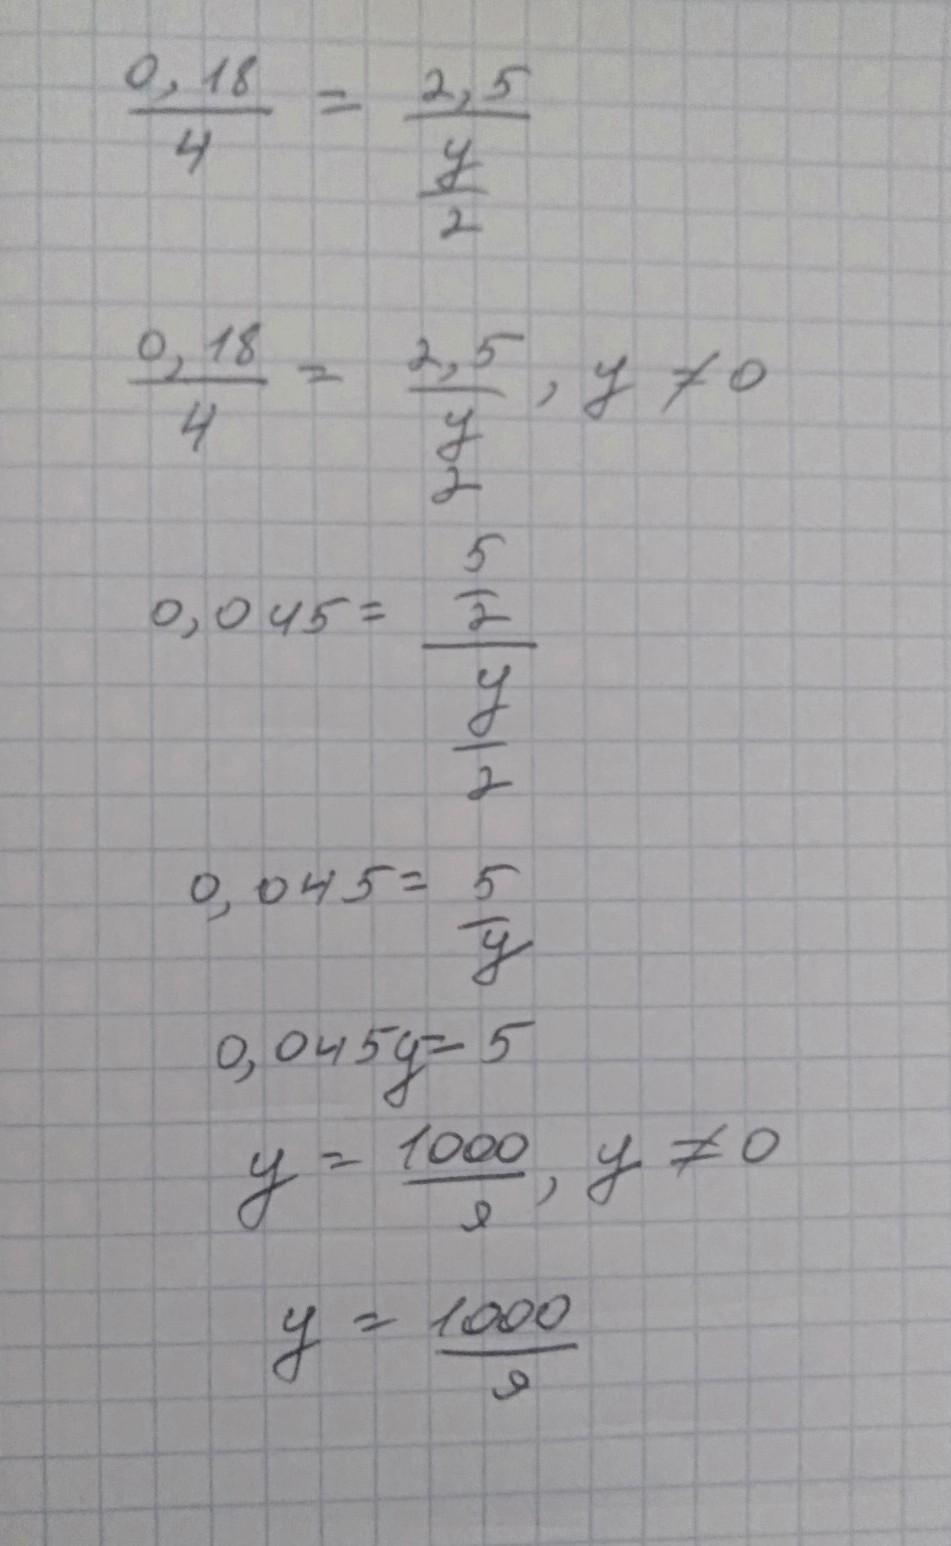 0,18/4 = 2,5/(y/2)
0,18/4 = 2,5/(y 2), y ≠ 0
0,045 = (5/2)/(y/2)
0,045 = 5/y
0,045y = 5
y = 1000/9, y ≠ 0
y = 1000/9